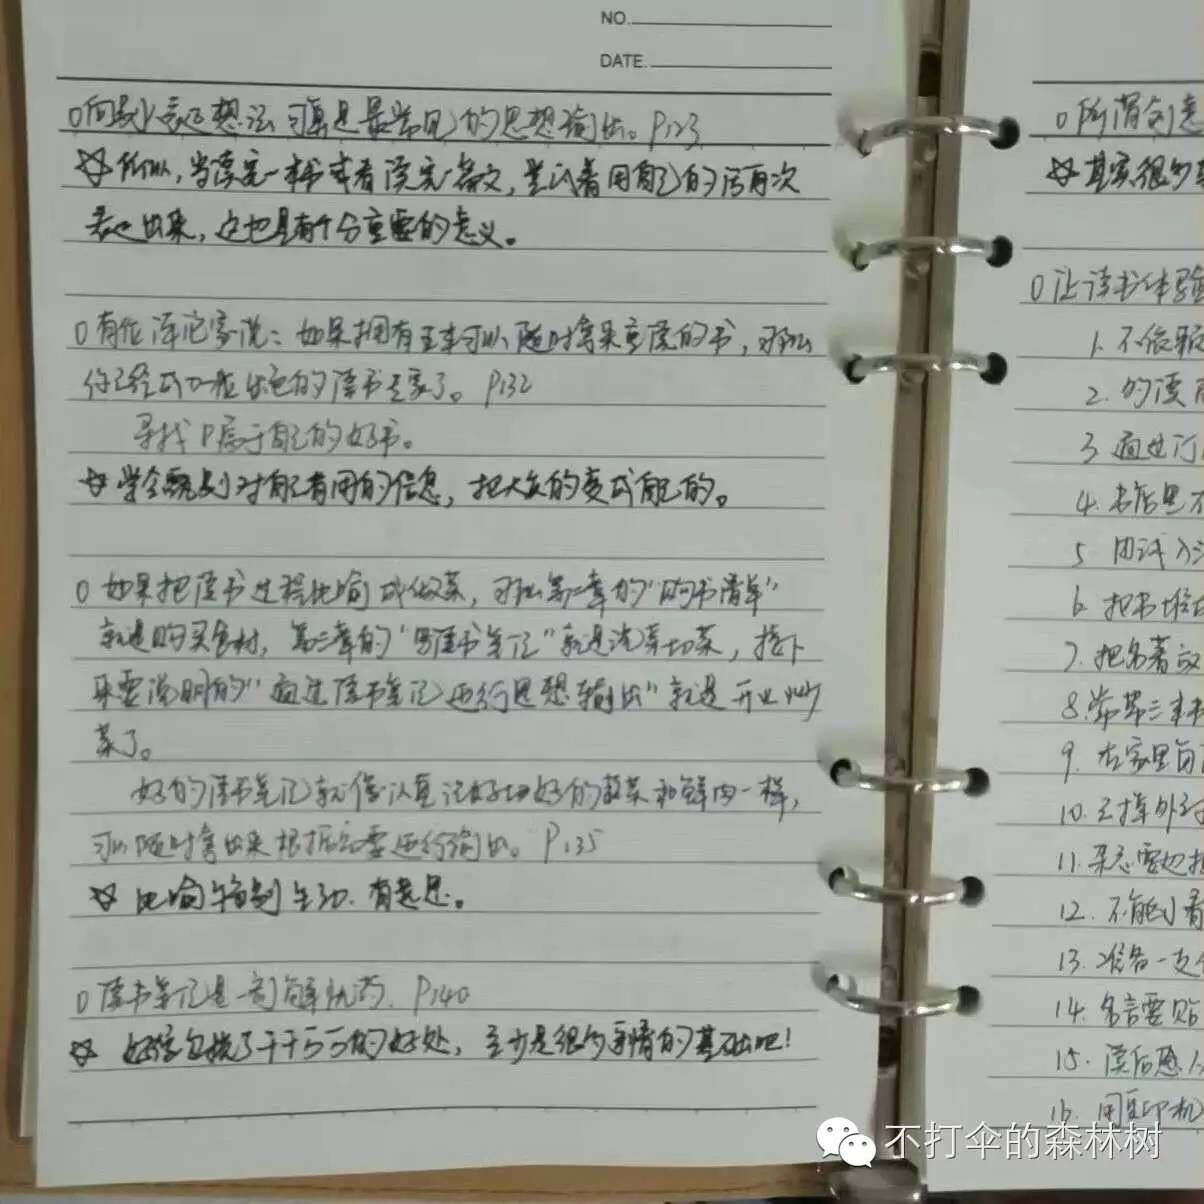 NO.
DATE.
○向别人表达想法可算是最常见的思想输出。P123
☆所以,当读完一本书或者读完一篇文,尝试着用自己的话再次
表达出来,这也具有十分重要的意义。
○有位评论家说:如果拥有五本可以随时拿来重读的书,那么
你已经成为一位出色的读书专家了。P132
寻找P属于自己的好书。
☆学会甄别对自己有用的信息,把大众的变成自己的。
○如果把读书过程比喻成做菜,那么第二章的“购书清单”
就是购买食材,第三章的“写读书笔记”就是洗菜切菜,接下
来要说明的“通过读书笔记进行思想输出”就是开火炒
菜了。
好的读书笔记就像认真洗好切好的蔬菜和鲜肉一样,
可以随时拿出来根据需要进行输出。P135
☆比喻特别生动、有意思。
○读书笔记是一剂解忧药. P140
☆好像包揽了千千万万的好处,至少是很多事情的基础吧!
○所谓创意
☆其实很多
○让读书体验
1. 不依赖
2. 的读
3. 通过订
4. 书店里不
5.
6. 把书堆
7. 把名著
8. 常带三本书
9. 在家里
10.
11. 杂志要
12. 不能小看
13. 准备一支
14. 名言要贴
15. 读后感
16. 用复印机
不打伞的森林树